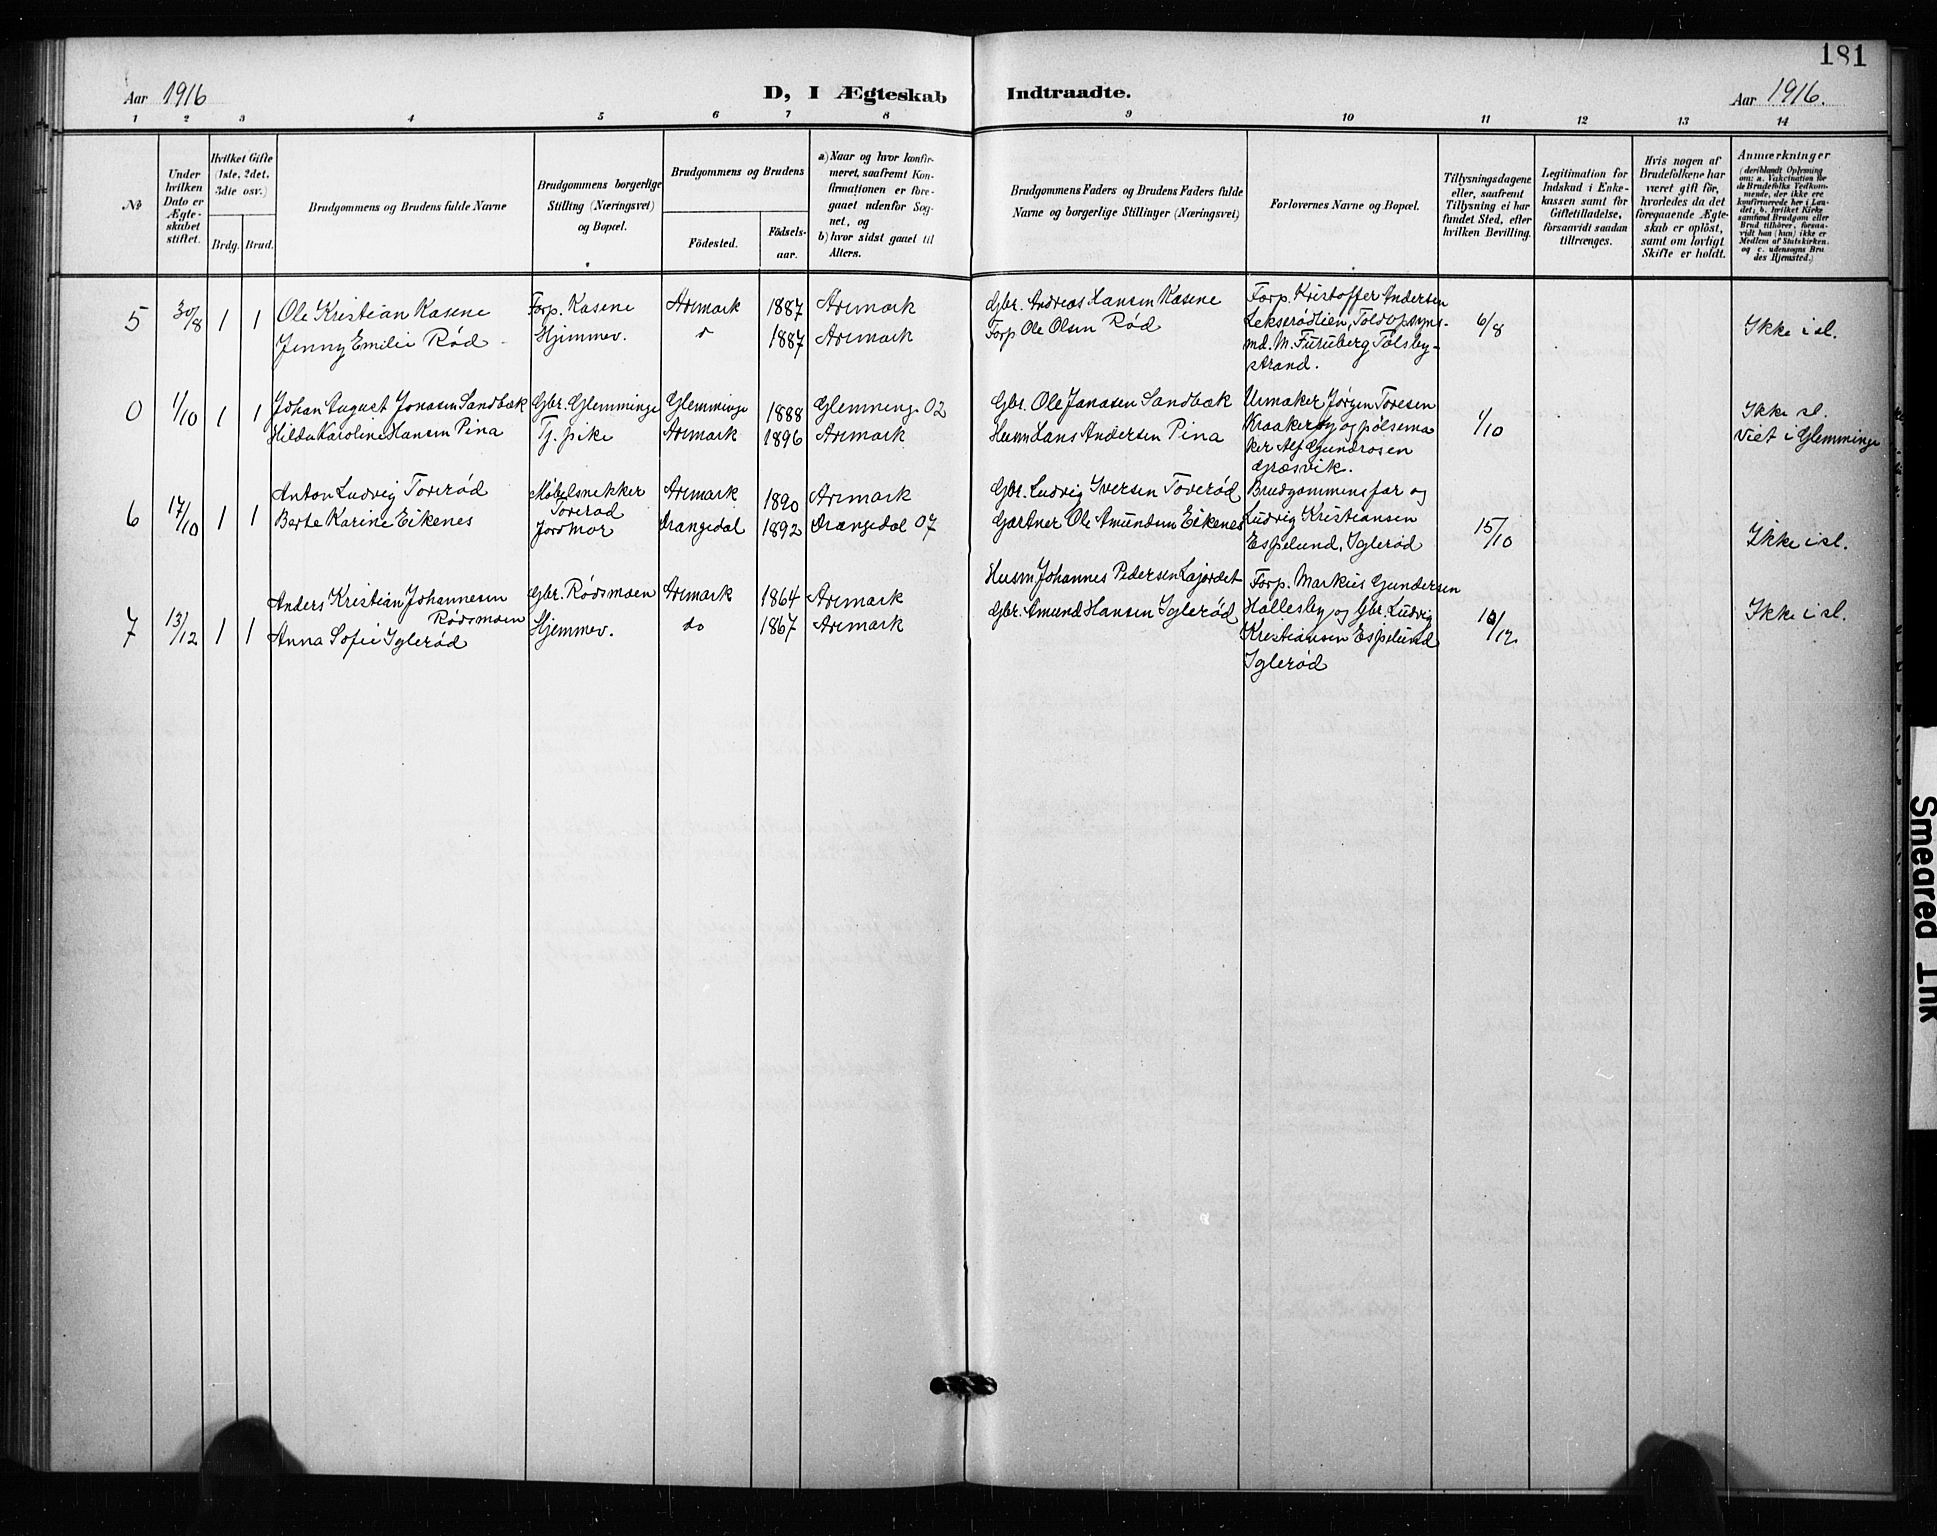 181
Aar 1916
D, I Ægteskab Indtraadte.
Aar 1916.
1 2 3 4 5 6 7 8 9 10 11 12 13 14
No
Under hvilken Dato er Ægteskabet stiftet.
Hvilket Gifte (1ste, 2det, 3die osv.)
Brdg. Brud.
Brudgommens og Brudens fulde Navne
Brudgommens borgerlige Stilling (Næringsvei) og Bopæl.
Brudgommens og Brudens
Födested.
Födsels-aar.
a) Naar og hvor konfirmeret, saafremt Konfirmationen er foregaaet udenför Sognet, og
b) hvor sidst gaaet til Alters.
Brudgommens Faders og Brudens Faders fulde Navne og borgerlige Stillinger (Næringsvei)
Forlovernes Navne og Bopæl.
Tillysningsdagene eller, saafremt Tillysning ei har fundet Sted, efter hvilken Bevilling.
Legitimation for Indskud i Enkekassen samt för Giftetilladelse, forsaavidt saadan tiltrænges.
Hvis nogen af Brudefolkene har været gift för, hvorledes da det foregaaende Ægteskab er oplöst, samt om lovligt Skifte er holdt.
Anmærkninger (deriblandt Oplysning om: a. Vakcination for de Brudefolks Vedkommende, der ikke ere konfirmerede her i Landet; b. hvilket Kirkesamfund Brudgom eller Brud tilhörer, forsaavidt han (hun) ikke er Medlem af Statskirken, og c. udensogns Brudes Hjemsted.)
5 30/8 1 1 Ole Kristian Kasene Forp. Kasene Aremark 1887 Aremark Gbr. Andreas Hansen Kasene Forp. Kristoffer Andersen
Jenny Emilie Rød Hjemmev. 1887 Aremark Forp Ole Olsen Rød Lekserødlien, Toldopsyns- 6/8 Ikke i sl.
md. M. Furuberg Tølsby-
strand.
0 1/10 1 1 Johan August Jonasen Sandbæk Gbr. Glemminge Glemminge 1888 Glemminge 02 Gbr. Ole Janasen Sandbæk Urmaker Jørgen Toresen 1/10 Ikke sl.
Hilda Karoline Hansen Pina Tj. pike Aremark 1896 Aremark Husm Hans Andersen Pina Kraakerøy og pølsema Viet i Glemminge
ker Alf Gundrosen
Græsvik.
6 17/10 1 1 Anton Ludvig Torerød Møbelsnekker Aremark 1890 Aremark Gbr. Ludvig Iversen Torerød Brudgommens far og
Torerød
Berte Karine Eikenes Jordmor Drangedal 1892 Drangedal 07 Gartner Ole Amundsen Eikenes Ludvig Kristiansen 15/10 Ikke i sl.
Espelund, Iglerød
7 13/12 1 1 Anders Kristian Johannesen Gbr. Rødsmoen Aremark 1864 Aremark Husm Johannes Pedersen Lajordet Forp. Markus Gundersen
Rødsmoen
Anna Sofie Iglerød Hjemmev. do 1867 Aremark Gbr. Amund Hansen Iglerød Hallesby og Gbr. Ludvig Ikke i sl.
Kristiansen Espelund
Iglerød
Smeared Ink